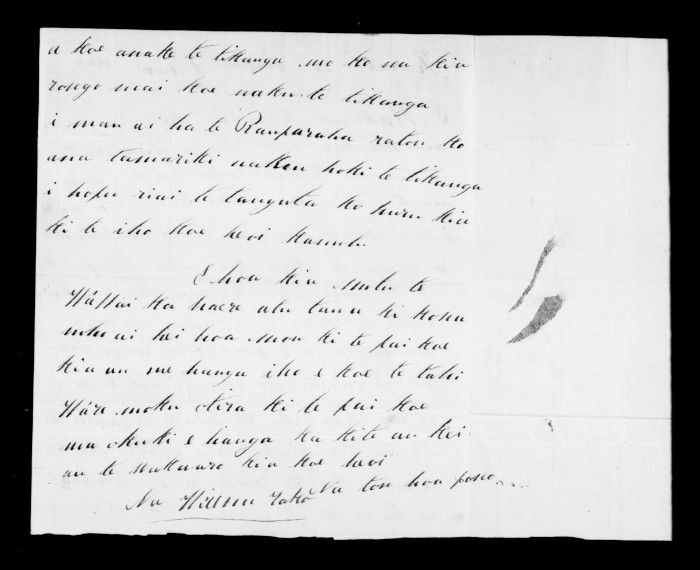 a koe anake te tikanga mo ko na kia
rongo mai koe naku te tikanga
i mau ai ha te Rauparaha ratou ko
ana tamariki naku hoki te tikanga
i hopu ai te tangata ko huru kia
ki te iho koe heoi kamutu
E hoa kia mutu te
ka haere atu tanu ki kona
noho ai hei hoa mou ki te pai koe
kia au me hanga iho e koe te tahi
Ware moku otira ki te pai koe
ma okuti e hanga ka kite au kei
au te wakaaro kia koe heoi
Na Wiremu Tako Na tou hoa pono